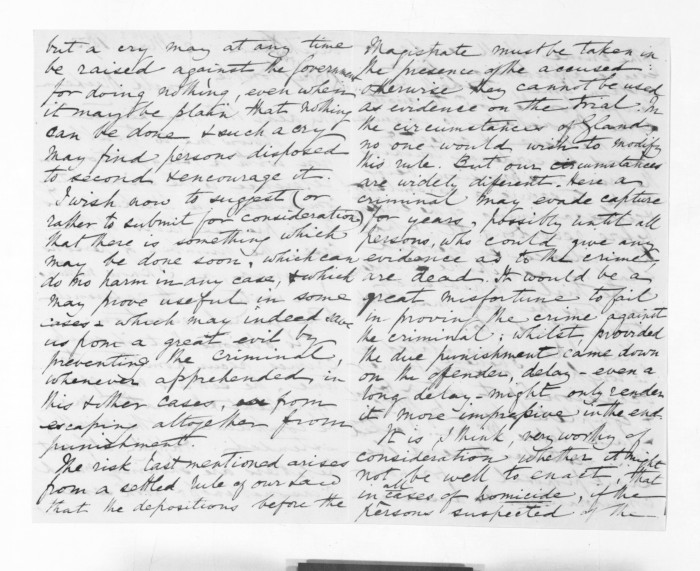 but a cry may at any time
be raised against the Government
for doing nothing, even when
it may be plain that nothing
can be done & such a cry
may find persons disposed
to second & encourage it.
I wish now to suggest (or
rather to submit for consideration)
that there is something which
may be done soon, which can
do no harm in any case, & which
may prove useful in some
cases - which may indeed save
us from a great evil by
preventing the criminal,
whenever apprehended in
this & other cases, from
escaping altogether from
punishment.
The risk last mentioned arises
from a settled rule of our Law
that the depositions before the
Magistrate must be taken in
the presence of the accused:
otherwise they cannot be used
as evidence on the trial. In
the circumstances of England
no one would wish to modify
this rule. But our circumstances
are widely diferent. Here a
criminal may evade capture
for years, possibly until all
persons, who could give any
evidence as to the crime,
are dead. It would be a
great misfortune to fail
in provin the crime against
the criminal; whilst, provided
the due punishment came down
on the offender, delay - even a
long delay - might only render
it more impressive in the end.
It is, I think, very worthy of
consideration whether it might
not be well to enact, that
in all cases of homicide, if the
persons suspected of the